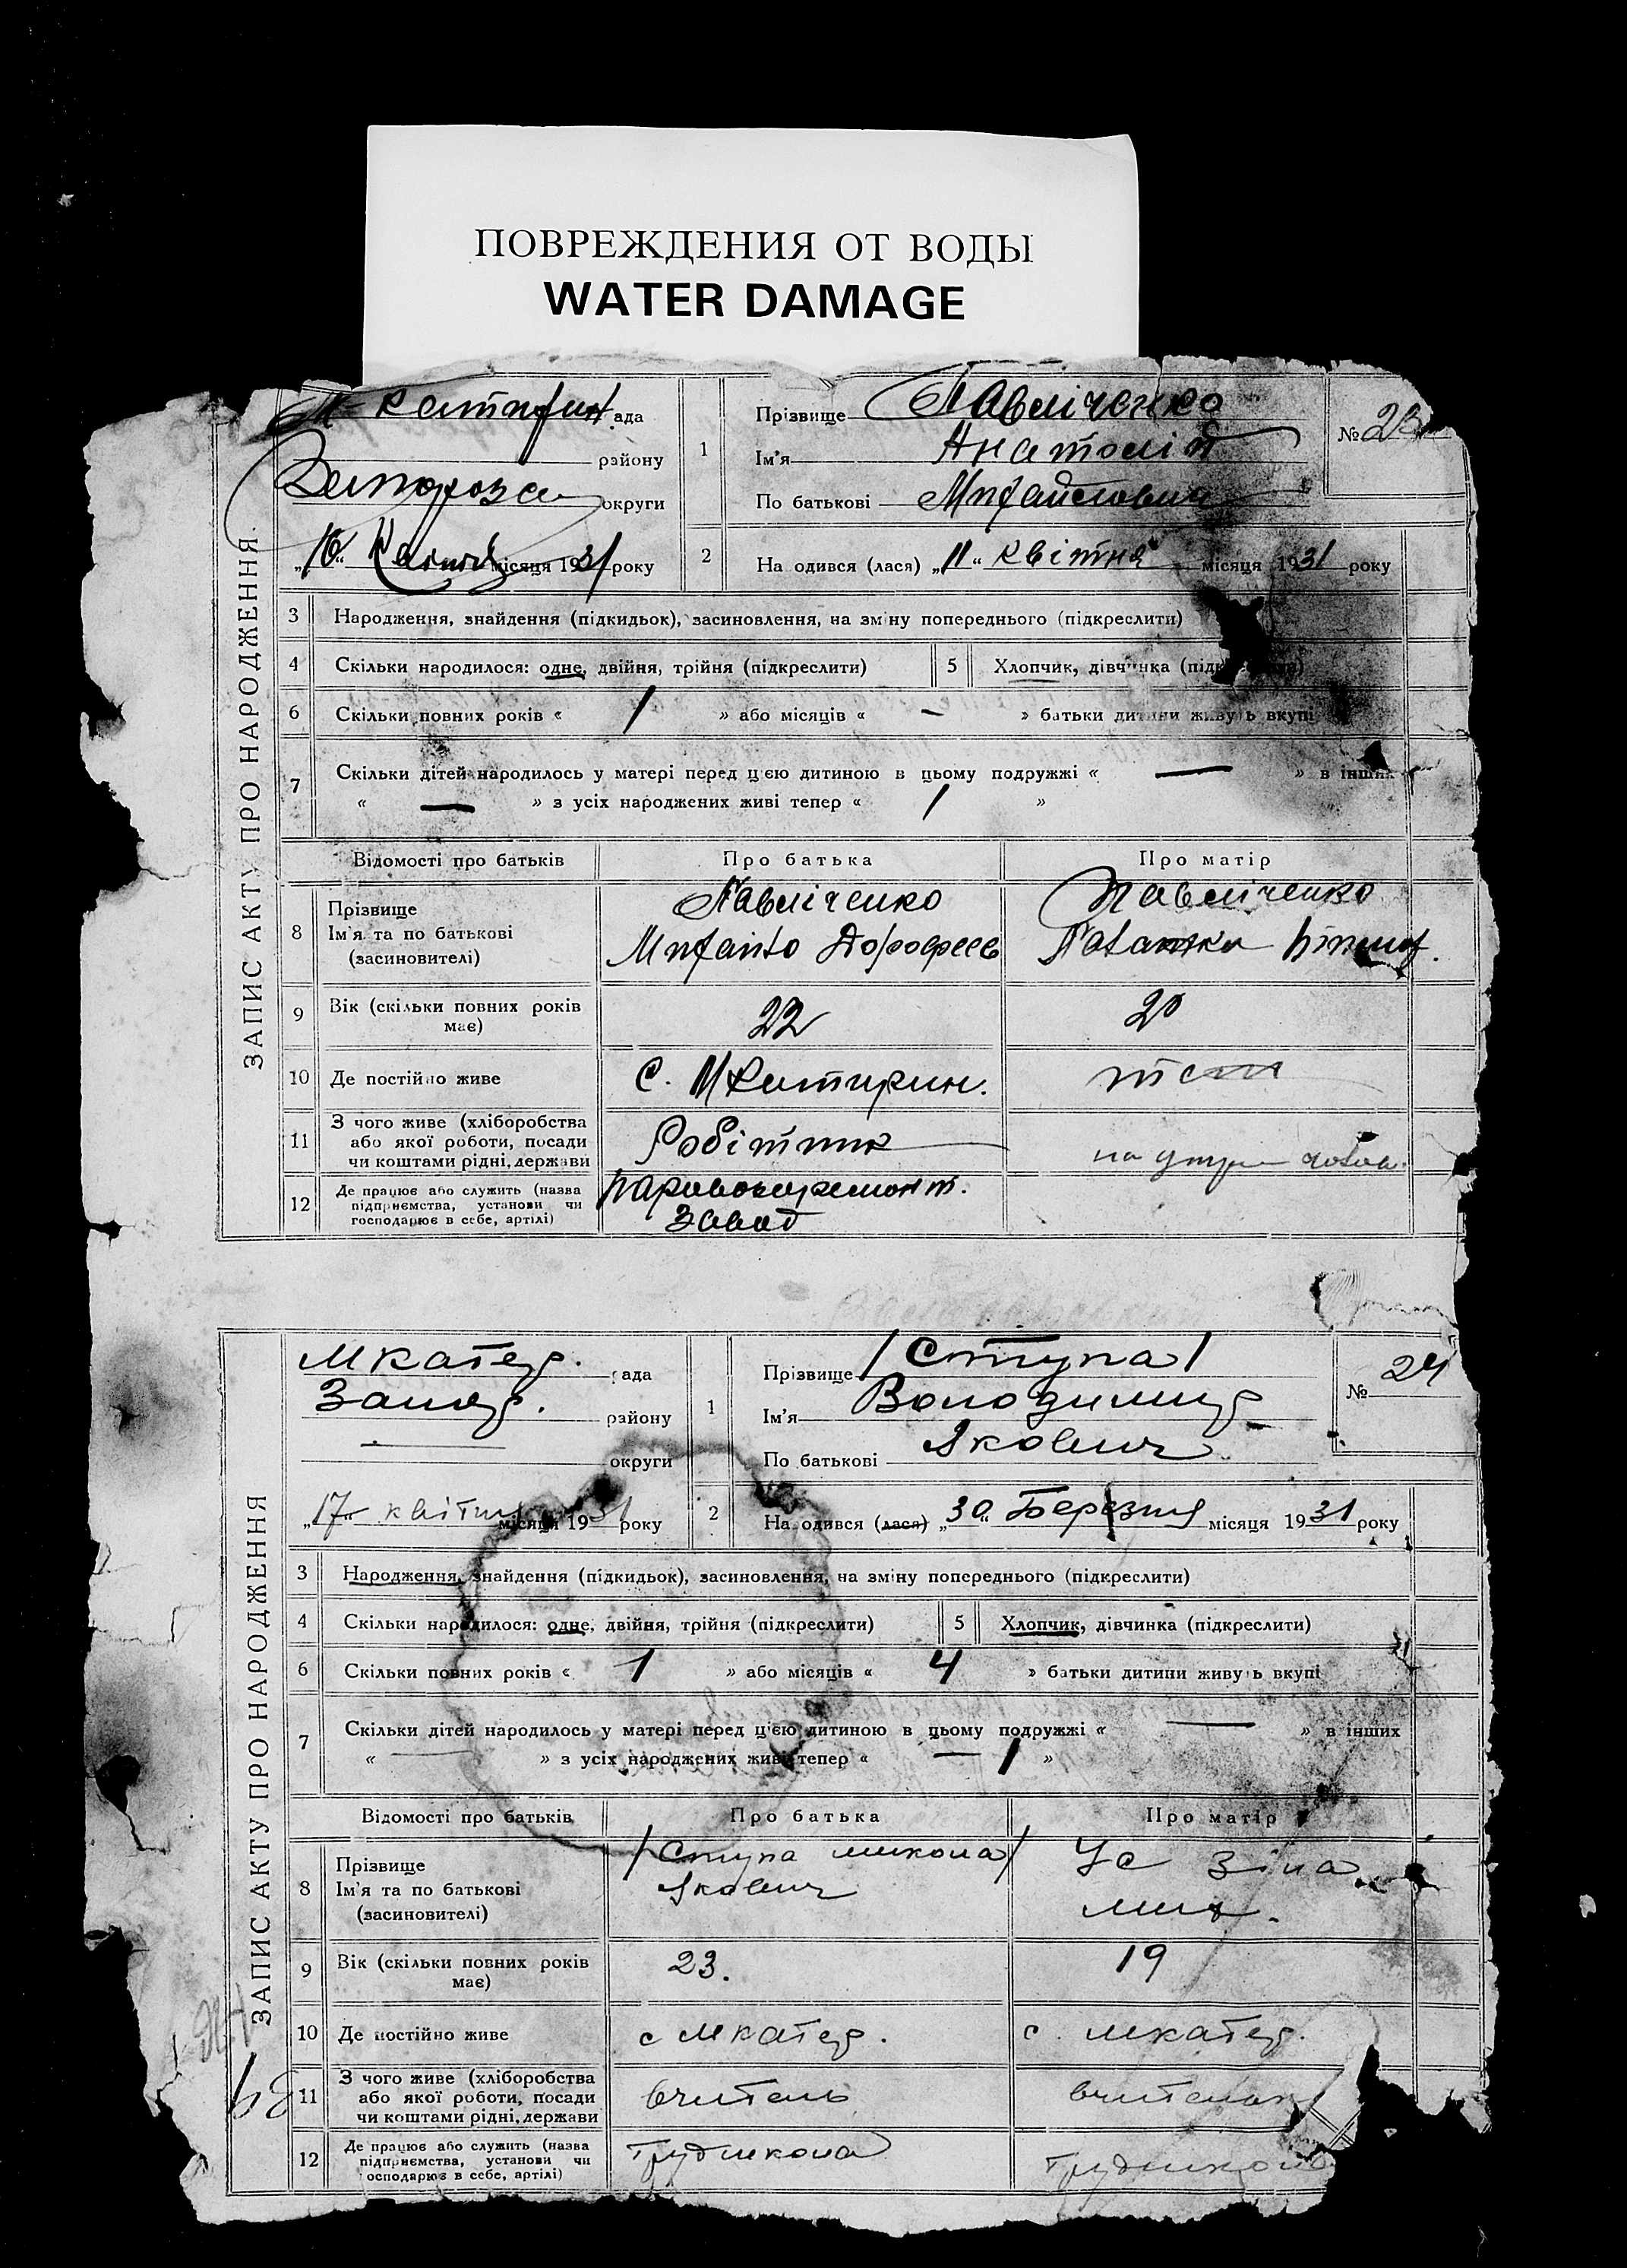 ПОВРЕЖДЕНИЯ ОТ ВОДЫ
WATER DAMAGE
ЗАПИС АКТУ ПРО НАРОДЖЕННЯ.
ада
району
округи
місяця 1931 року
1
Прізвище Павліченко
Ім'я Анатолій
По батькові
№ 23
2
На одився (лася) „11“ квітня місяця 1931 року
3 Народження, знайдення (підкидьок), засиновлення, на зміну попереднього (підкреслити)
4 Скільки народилося: одне, двійня, трійня (підкреслити) 5 Хлопчик, дівчинка
6 Скільки повних років « 1 » або місяців « – » батьки дитини живуть вкупі
7 Скільки дітей народилось у матері перед цією дитиною в цьому подружжі « — » в інших
« — » з усіх народжених живі тепер « 1 »
Відомості про батьків Про батька Про матір
8 Прізвище Павліченко Павліченко
Ім'я та по батькові
(засиновителі)
9 Вік (скільки повних років має) 22 20
10 Де постійно живе с.
11 З чого живе (хліборобства або якої роботи, посади чи коштами рідні, держави Робітник
12 Де працює або служить (назва підприємства, установи чи господарює в себе, артілі) паровозоремонт. завод
ЗАПИС АКТУ ПРО НАРОДЖЕННЯ
Мкатер. ада
району
— округи
„17“ квітня місяця 1931 року
1
Прізвище /Ступа/
Ім'я Володимир
По батькові Якович
№ 24
2
На одився (лася) „30“ Березня місяця 1931 року
3 Народження, знайдення (підкидьок), засиновлення, на зміну попереднього (підкреслити)
4 Скільки народилося: одне, двійня, трійня (підкреслити) 5 Хлопчик, дівчинка (підкреслити)
6 Скільки повних років « 1 » або місяців « 4 » батьки дитини живуть вкупі
7 Скільки дітей народилось у матері перед цією дитиною в цьому подружжі « — » в інших
« — » з усіх народжених живі тепер « — 1 »
Відомості про батьків Про батька Про матір
8 Прізвище /Ступа микола/ Ус Зіна
Ім'я та по батькові Якович мих.
(засиновителі)
9 Вік (скільки повних років має) 23. 19
10 Де постійно живе с мкатер. с. мкатер.
11 З чого живе (хліборобства або якої роботи, посади чи коштами рідні, держави вчитель
12 Де працює або служить (назва підприємства, установи чи осподарює в себе, артілі) Трудшкола Трудшкола